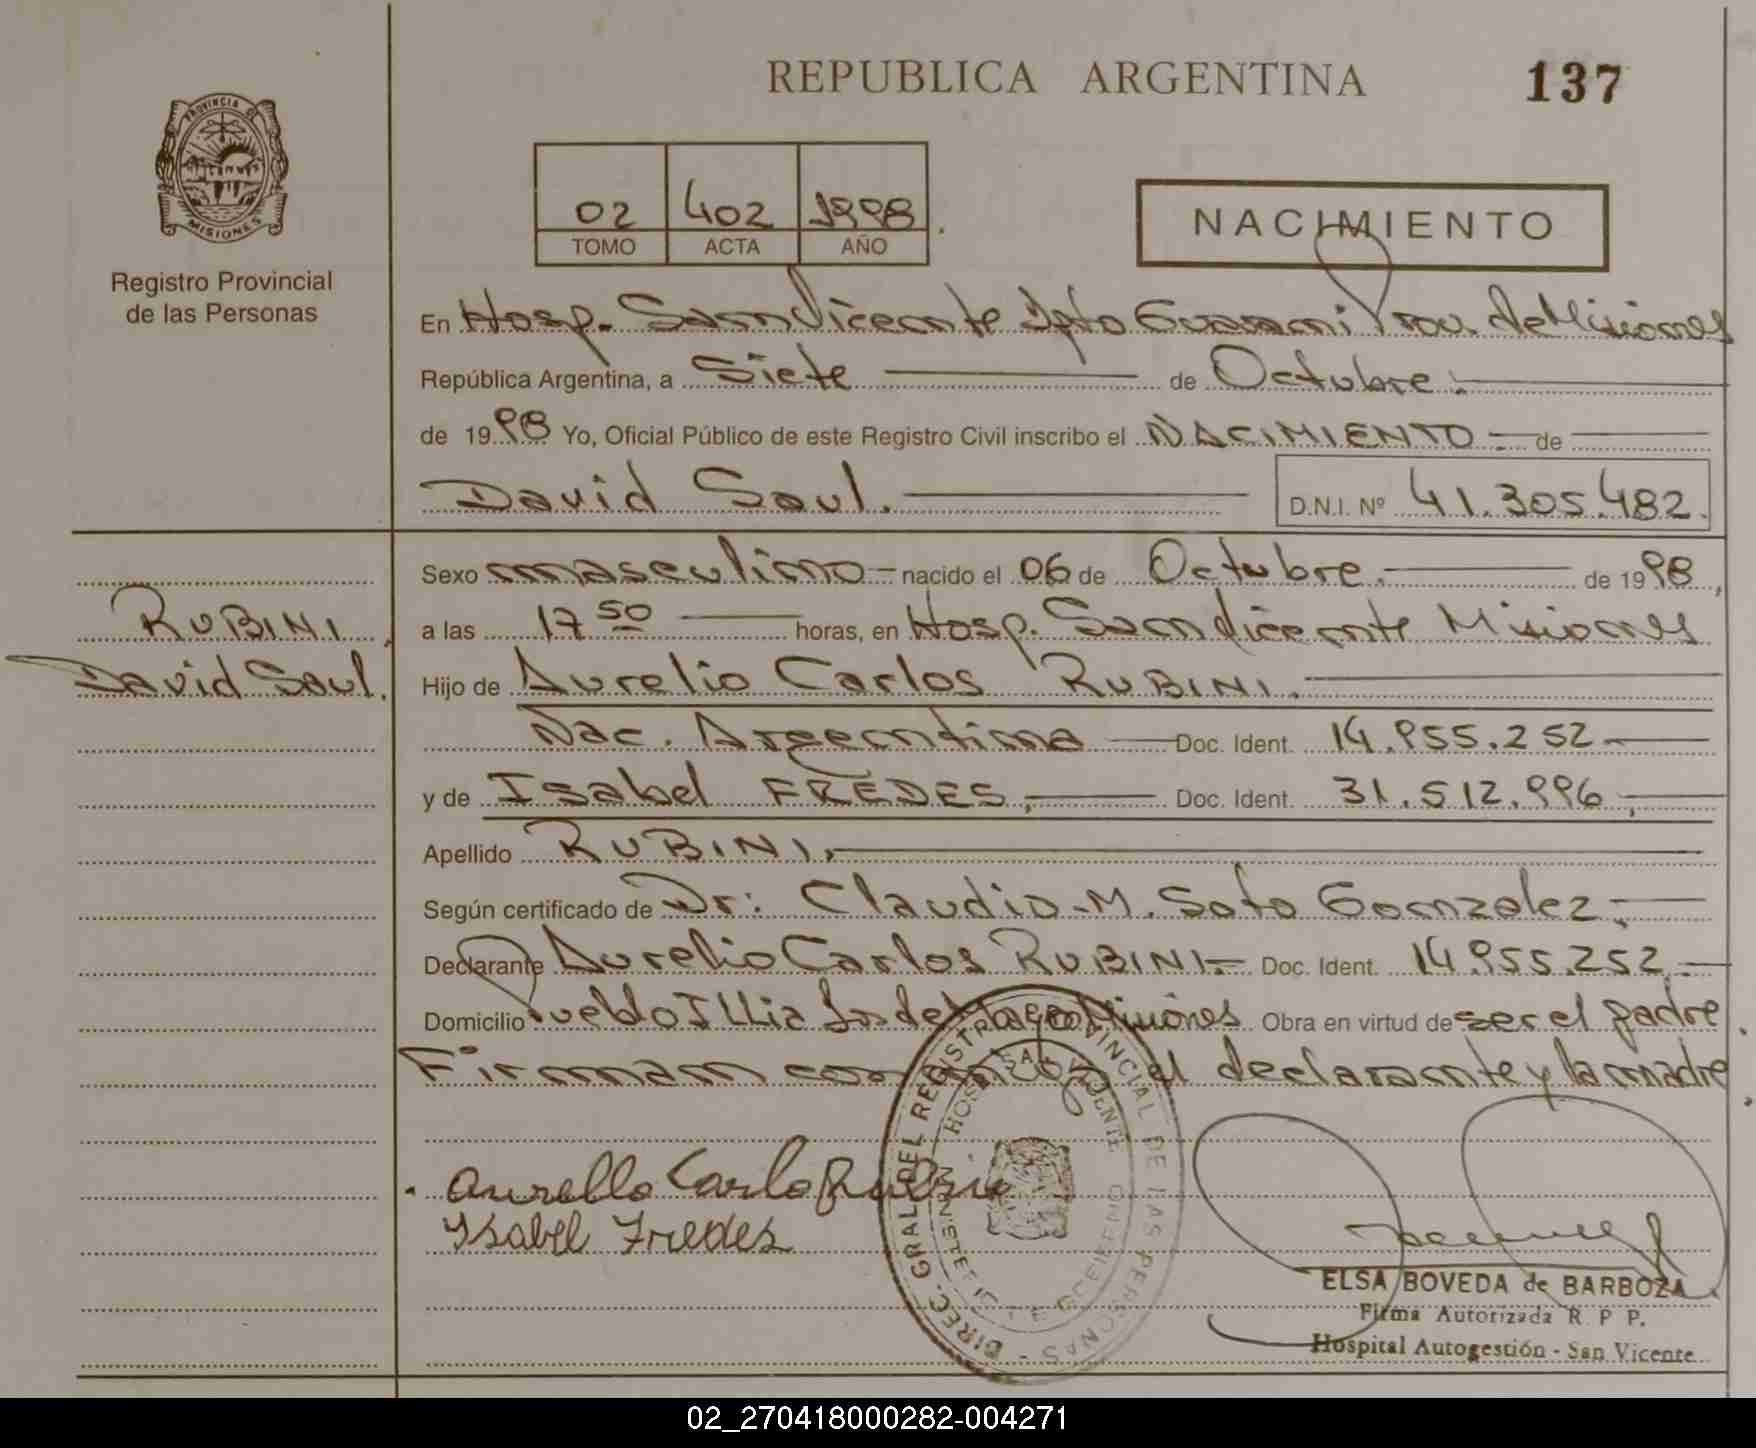 REPUBLICA ARGENTINA
137
PROVINCIA DE
MISIONES
Registro Provincial
de las Personas
02 402 1998
TOMO ACTA AÑO
NACIMIENTO
En Hosp. San Vicente Dpto Guarani Prov. de Misiones
República Argentina, a Siete de Octubre.
de 1998 Yo, Oficial Público de este Registro Civil inscribo el NACIMIENTO de
David Saul.
D.N.I. Nº 41.305.482.
Sexo masculino nacido el 06 de Octubre. de 1998,
RUBINI,
David Saul.
a las 17 50 horas, en Hosp. San Vicente Misiones
Hijo de Aurelio Carlos RUBINI.
Nac. Argentina Doc. Ident. 14.955.252
y de Isabel FREDES, Doc. Ident. 31.512.996,
Apellido RUBINI,
Según certificado de Dr: Claudio M. Soto Gonzalez,
Declarante Aurelio Carlos RUBINI Doc. Ident. 14.955.252
Domicilio Pueblo Illia Misiones Obra en virtud de ser el padre.
Firman el declarante y la madre.
Isabel Fredes
DIREC. GRAL. DEL REGISTRO PROVINCIAL DE LAS PERSONAS
ELSA BOVEDA de BARBOZA
Firma Autorizada R. P. P.
Hospital Autogestión - San Vicente
02_270418000282-004271